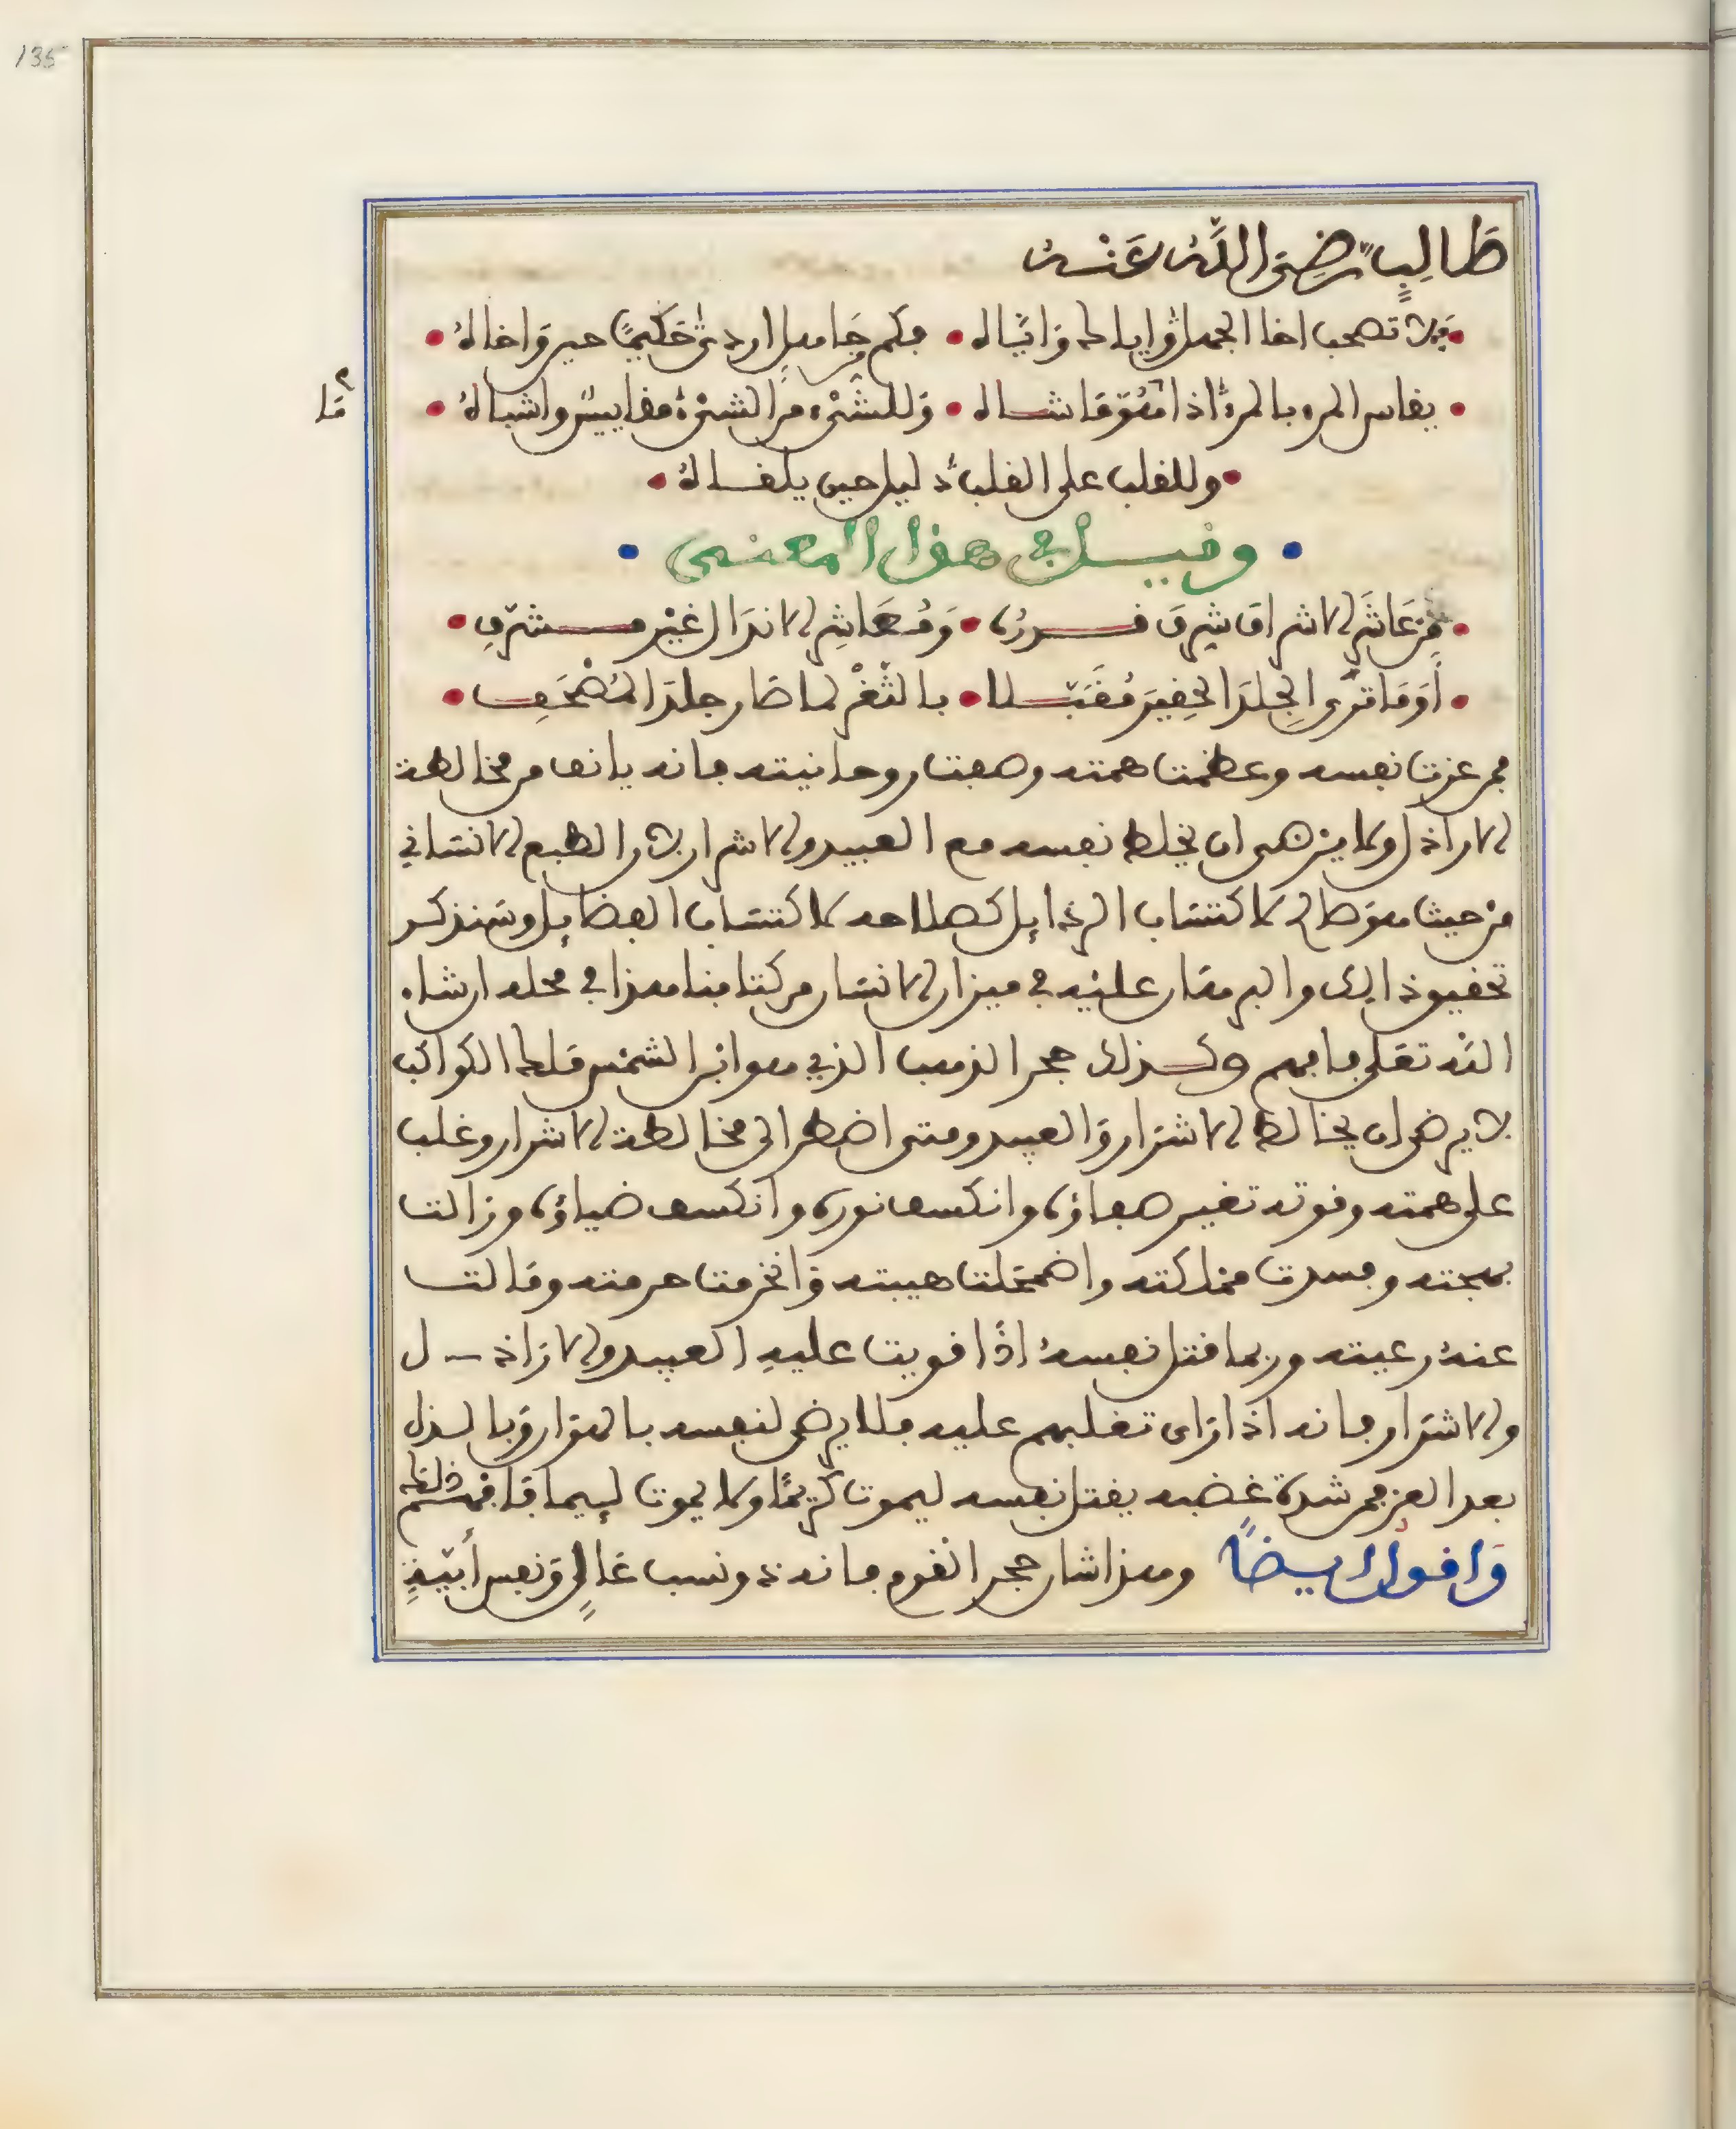 135
طَالِبٍ رَضِيَ اللَّهُ عَنْهُ
• فلا تصحب اخا الجهل وإياك وَإيَّاه • فكم جَاهل اردى حَكيمًا حين وَاخاهُ •
ما
• يقاس المرء بالمرء اذا مَا هُوَ مَاشاه • وَللشَّيْء مِنَ الشَّيْء مقاييسٌ واشباهُ •
• وللقلب على القلب دليل حين يلقاهُ •
• وقيل في هذا المعنى •
• مَن عَاشَرَ الاشراف شرِفَ قدرُه • وَمُعَاشِر الانذَال غيْر مشرّفِ •
• أوَمَا ترَى الجِلدَ الحقِيرَ مُقَبَّلا • بالثَّغْر لما صَار جلدَ المُصْحَفِ •
فمن عزت نفسه وعظمت همته وصفت روحانيته فانه يانف من مخالطة
الاراذل ولا يرضى ان يخلط نفسه مع العبيد والاشرار لان الطبع الانسَاني
من حيث هو صَالح لاكتسَاب الرذايل كصلاحه لاكتسَاب الفضايل وسَنذكر
تحقيق ذالك والبرهَان عليْه في ميزان الانسَان من كتابنا هذا في محله ان شاء
اللّه تعَلى فافهم وكذلك حجر الذهب الذي هو ابن الشمْس مَلك الكواكب
لا يرضى ان يخالط الاشرَار وَالعبيد ومتى اضطر الى مخالطة الاشرار وغلب
على همته وقوته تغير صفاؤه وانكسف نوره وانكسف ضياؤه وزالت
بهجته وفسدت مملكته واضمحَلت هيبته وَانخرمت حرمته ومَالت
عنهُ رعيته وربما قتل نفسهُ اذَا قويت عليهِ العبيد والارَاذل
والاشرَار فانه اذا رَاى تغلبهم عليه فلا يرضى لنفسه بالهوَان وَبالذل
بعد العز فمن شدة غضبه يقتل نفسه ليموت كريمًا ولا يموت لييما فافهم ذلك
وَاقول ايضًا وهذا شان حجر القوم فانه ذو نسب عَالٍ وَنفس أبيّةٍ